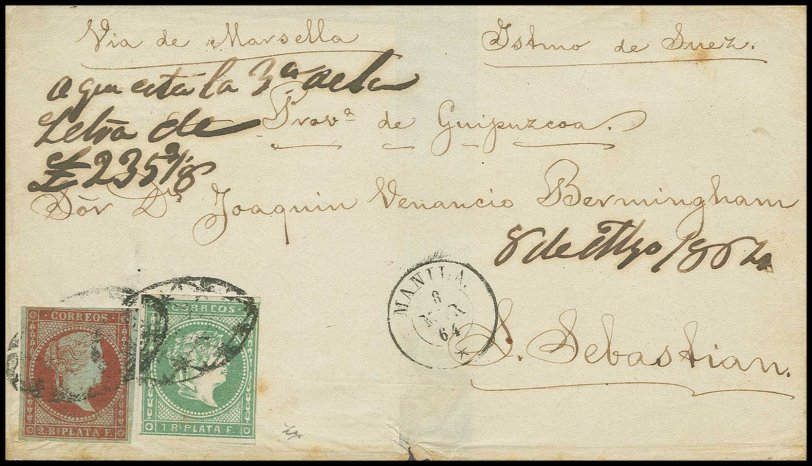 Via de Marsella
Istmo de Suez.
aquí está la 3ª de la
Letra de
£ 235 9/8
Provª de Guipuzcoa.
Sõr Dn Joaquin Venancio Bermingham
8 de Mzo 1864
MANILA.
8
MAR
64
S. Sebastian.
CORREOS
2 Rs PLATA F.
CORREOS
1 Rl PLATA F.